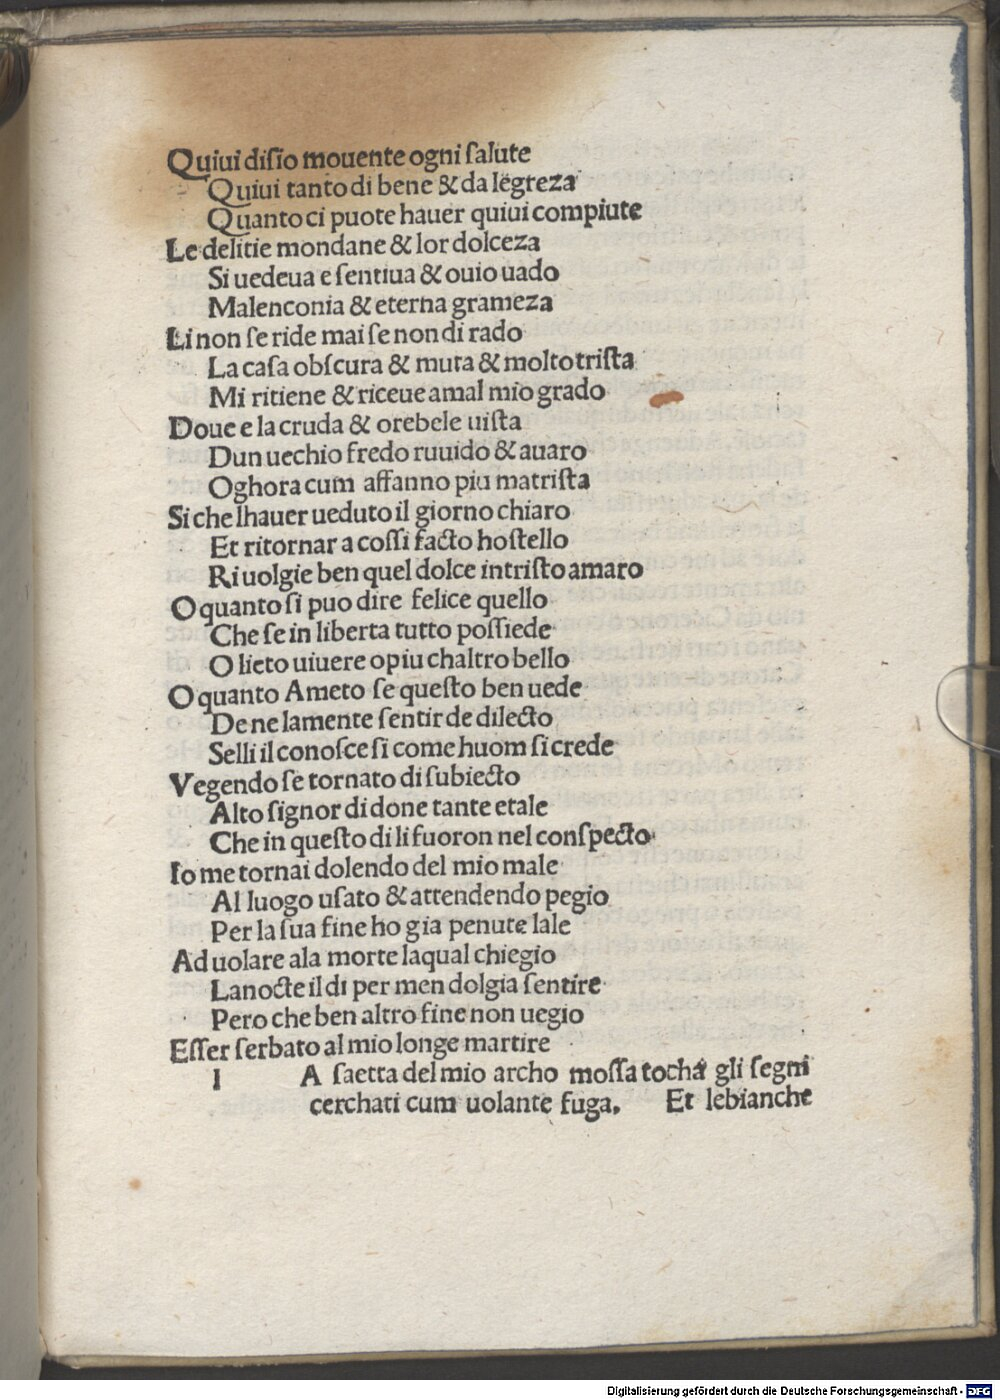 Quiui disio mouente ogni salute
Quiui tanto di bene & da legreza
Quanto ci puote hauer quiui compiute
Le delitie mondane & lor dolceza
Si uedeua e sentiua & ouio uado
Malenconia & eterna grameza
Li non se ride mai se non di rado
La casa obscura & muta & molto trista
Mi ritiene & riceue amal mio grado
Doue e la cruda & orebele uista
Dun uechio fredo ruuido & auaro
Oghora cum affanno piu matrista
Si che lhauer ueduto il giorno chiaro
Et ritornar a cossi facto hostello
Riuolgie ben quel dolce intristo amaro
O quanto si puo dire felice quello
Che se in liberta tutto possiede
O lieto uiuere o piu chaltro bello
O quanto Ameto se questo ben uede
De ne lamente sentir de dilecto
Selli il conosce si come huom si crede
Vegendo se tornato di subiecto
Alto signor di done tante etale
Che in questo di li fuoron nel conspecto
Io me tornai dolendo del mio male
Al luogo usato & attendendo pegio
Per la sua fine ho gia penute lale
Ad uolare ala morte laqual chiegio
La nocte il di per men dolgia sentire
Pero che ben altro fine non uegio
Esser serbato al mio longe martire
l A saetta del mio archo mossa tocha gli segni
cerchati cum uolante fuga. Et le bianche
Digitalisierung gefördert durch die Deutsche Forschungsgemeinschaft - DFG